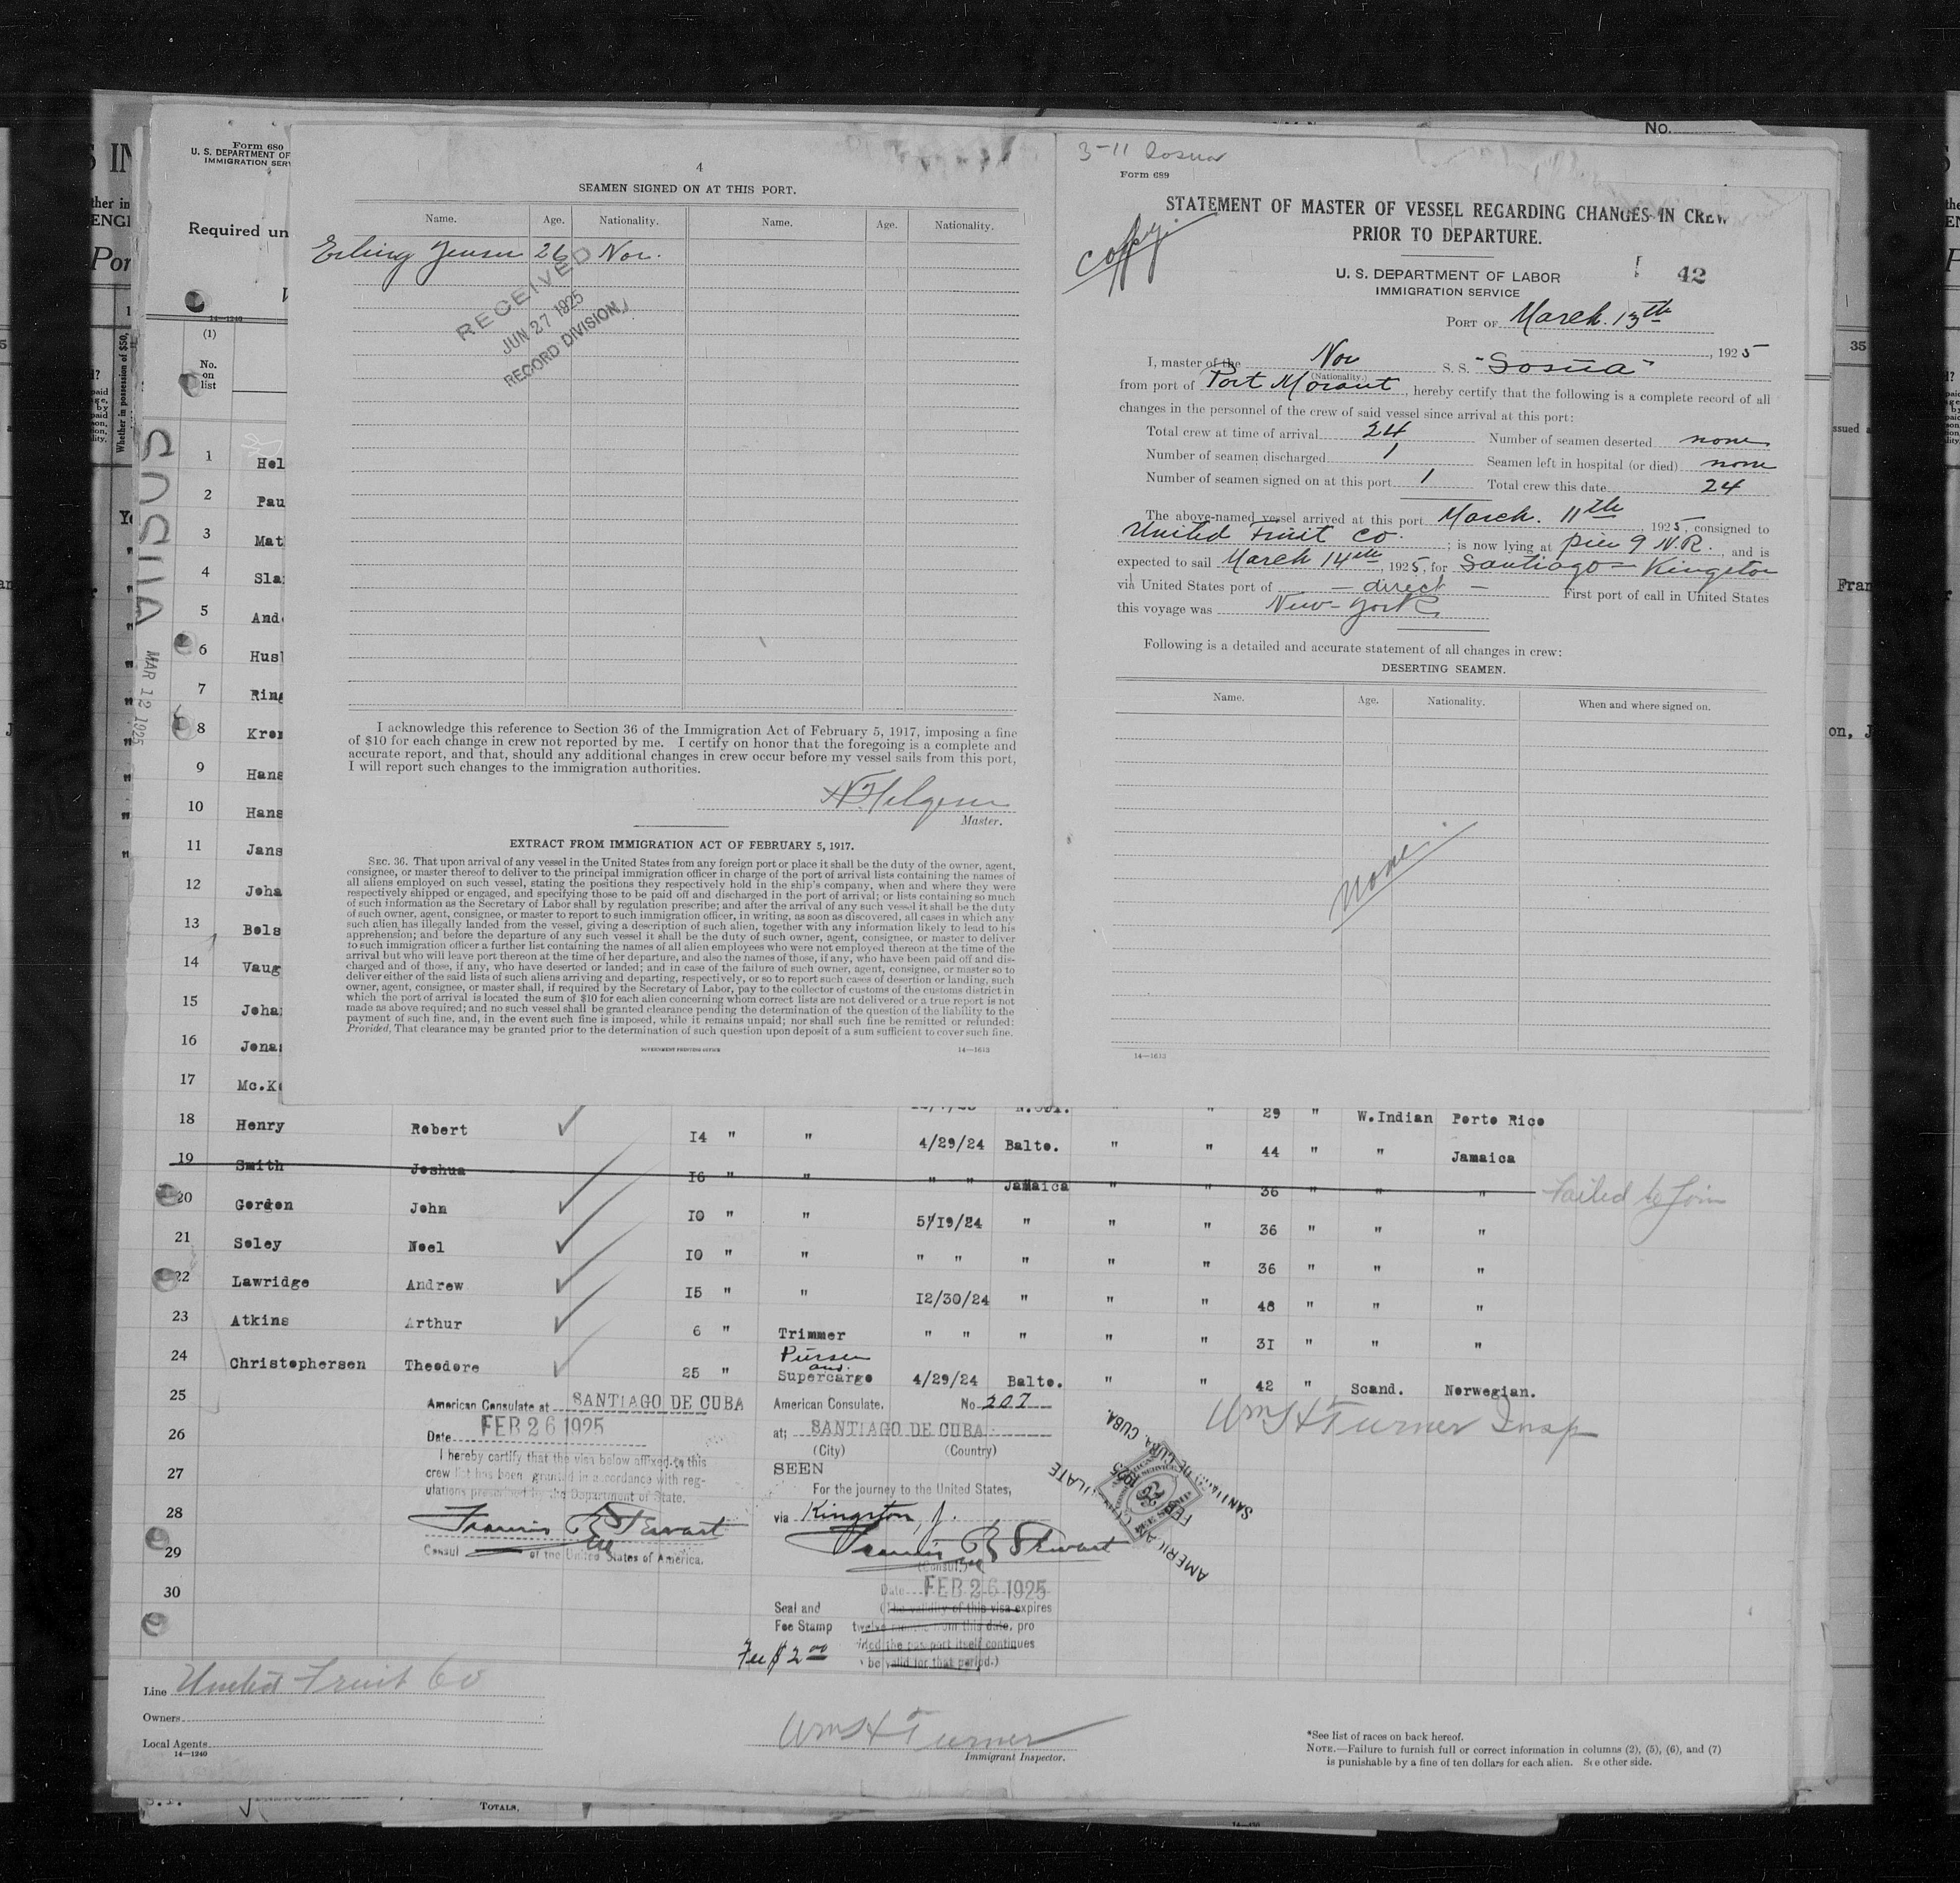 No.
Form 680
U. S. DEPARTMENT OF
IMMIGRATION SERV
Required un
14—1240
(1)
No.
on
list
SOSUA
MAR 12 1925
4
SEAMEN SIGNED ON AT THIS PORT.
Name. Age. Nationality. Name. Age. Nationality.
Erling Jensen 26 Nor.
RECEIVED
JUN 27 1925
RECORD DIVISION
I acknowledge this reference to Section 36 of the Immigration Act of February 5, 1917, imposing a fine
of $10 for each change in crew not reported by me. I certify on honor that the foregoing is a complete and
accurate report, and that, should any additional changes in crew occur before my vessel sails from this port,
I will report such changes to the immigration authorities.
N Helgesen
Master.
EXTRACT FROM IMMIGRATION ACT OF FEBRUARY 5, 1917.
SEC. 36. That upon arrival of any vessel in the United States from any foreign port or place it shall be the duty of the owner, agent,
consignee, or master thereof to deliver to the principal immigration officer in charge of the port of arrival lists containing the names of
all aliens employed on such vessel, stating the positions they respectively hold in the ship's company, when and where they were
respectively shipped or engaged, and specifying those to be paid off and discharged in the port of arrival; or lists containing so much
of such information as the Secretary of Labor shall by regulation prescribe; and after the arrival of any such vessel it shall be the duty
of such owner, agent, consignee, or master to report to such immigration officer, in writing, as soon as discovered, all cases in which any
such alien has illegally landed from the vessel, giving a description of such alien, together with any information likely to lead to his
apprehension; and before the departure of any such vessel it shall be the duty of such owner, agent, consignee, or master to deliver
to such immigration officer a further list containing the names of all alien employees who were not employed thereon at the time of the
arrival but who will leave port thereon at the time of her departure, and also the names of those, if any, who have been paid off and dis-
charged and of those, if any, who have deserted or landed; and in case of the failure of such owner, agent, consignee, or master so to
deliver either of the said lists of such aliens arriving and departing, respectively, or so to report such cases of desertion or landing, such
owner, agent, consignee, or master shall, if required by the Secretary of Labor, pay to the collector of customs of the customs district in
which the port of arrival is located the sum of $10 for each alien concerning whom correct lists are not delivered or a true report is not
made as above required; and no such vessel shall be granted clearance pending the determination of the question of the liability to the
payment of such fine, and, in the event such fine is imposed, while it remains unpaid; nor shall such fine be remitted or refunded:
Provided, That clearance may be granted prior to the determination of such question upon deposit of a sum sufficient to cover such fine.
GOVERNMENT PRINTING OFFICE 14—1613
3-11 Sosua
Form 689
copy
STATEMENT OF MASTER OF VESSEL REGARDING CHANGES IN CREW
PRIOR TO DEPARTURE.
U. S. DEPARTMENT OF LABOR
IMMIGRATION SERVICE
42
PORT OF March. 13th
, 1925
I, master of the Nor S. S. "Sosua"
(Nationality.)
from port of Port Morant, hereby certify that the following is a complete record of all
changes in the personnel of the crew of said vessel since arrival at this port:
Total crew at time of arrival 24 Number of seamen deserted none
Number of seamen discharged 1 Seamen left in hospital (or died) none
Number of seamen signed on at this port 1 Total crew this date 24
The above-named vessel arrived at this port March. 11th, 1925, consigned to
United Fruit Co. ; is now lying at pier 9 N.R., and is
expected to sail March 14th, 1925, for Santiago - Kingston
via United States port of — direct — First port of call in United States
this voyage was New-York
Following is a detailed and accurate statement of all changes in crew:
DESERTING SEAMEN.
Name. Age. Nationality. When and where signed on.
none
14—1613
1 Hel
2 Pau
3 Mat
4 Sla
5 And
6 Hus
7 Ring
8 Kro
9 Hans
10 Hans
11 Jans
12 Joha
13 Bols
14 Vaug
15 Joha
16 Jona
17 Mc.K
29 " W.Indian Porto Rico
18 Henry Robert 14 " " 4/29/24 Balto. " " 44 " " Jamaica
19 Smith Joshua 16 " " " " Jamaica " " 36 " " " Failed to Join
20 Gordon John 10 " " 5/19/24 " " " 36 " " "
21 Soley Noel 10 " " " " " " " 36 " " "
22 Lawridge Andrew 15 " " 12/30/24 " " " 48 " " "
23 Atkins Arthur 6 " Trimmer " " " " " 31 " " "
24 Christophersen Theodore 25 " Purser and Supercargo 4/29/24 Balto. " " 42 " Scand. Norwegian.
25
26
27
28
29
30
Wm H Turner Insp
American Consulate at SANTIAGO DE CUBA
Date FEB 26 1925
I hereby certify that the visa below affixed to this
crew list has been granted in accordance with reg-
ulations prescribed by the Department of State.
Francis R Stewart
Consul of the United States of America.
American Consulate. No 207
at; SANTIAGO DE CUBA
(City) (Country)
SEEN
For the journey to the United States,
via Kingston, J.
Francis R Stewart
(Consul)
Date FEB 26 1925
Seal and (The validity of this visa expires
Fee Stamp twelve months from this date, pro
vided the passport itself continues
be valid for that period.)
Fee $2.00
Line United Fruit Co
Owners
Local Agents
14—1240
Wm H Turner
Immigrant Inspector.
*See list of races on back hereof.
NOTE.—Failure to furnish full or correct information in columns (2), (5), (6), and (7)
is punishable by a fine of ten dollars for each alien. See other side.
TOTALS,